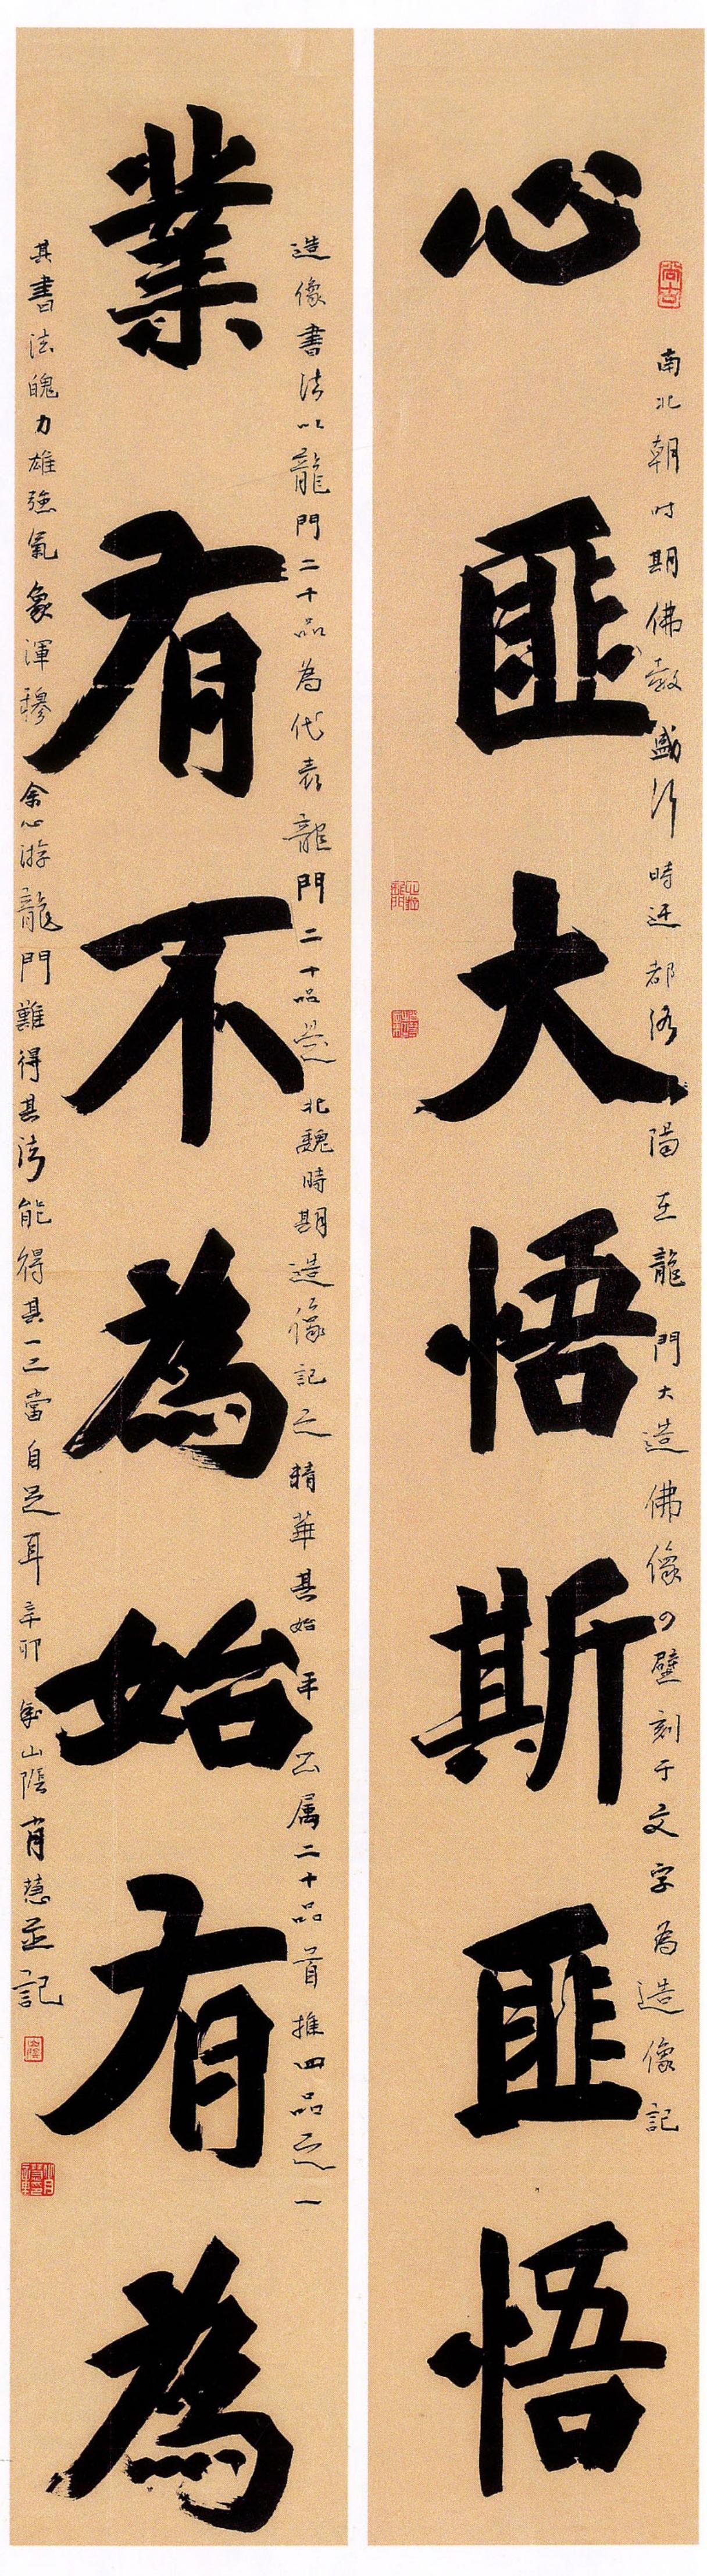 心匪大悟斯匪悟
南北朝时期佛教盛行時迁都洛陽在龍門大造佛像壁刻于文字為造像記
業有不為始有為
造像書法以龍門二十品為代表龍門二十品是北魏時期造像記之精華其始平公属二十品首推四品之一
其書法魄力雄強氣象渾穆余心游龍門難得其法能得其一二當自足耳辛卯年山陰肖慧並記
尚古